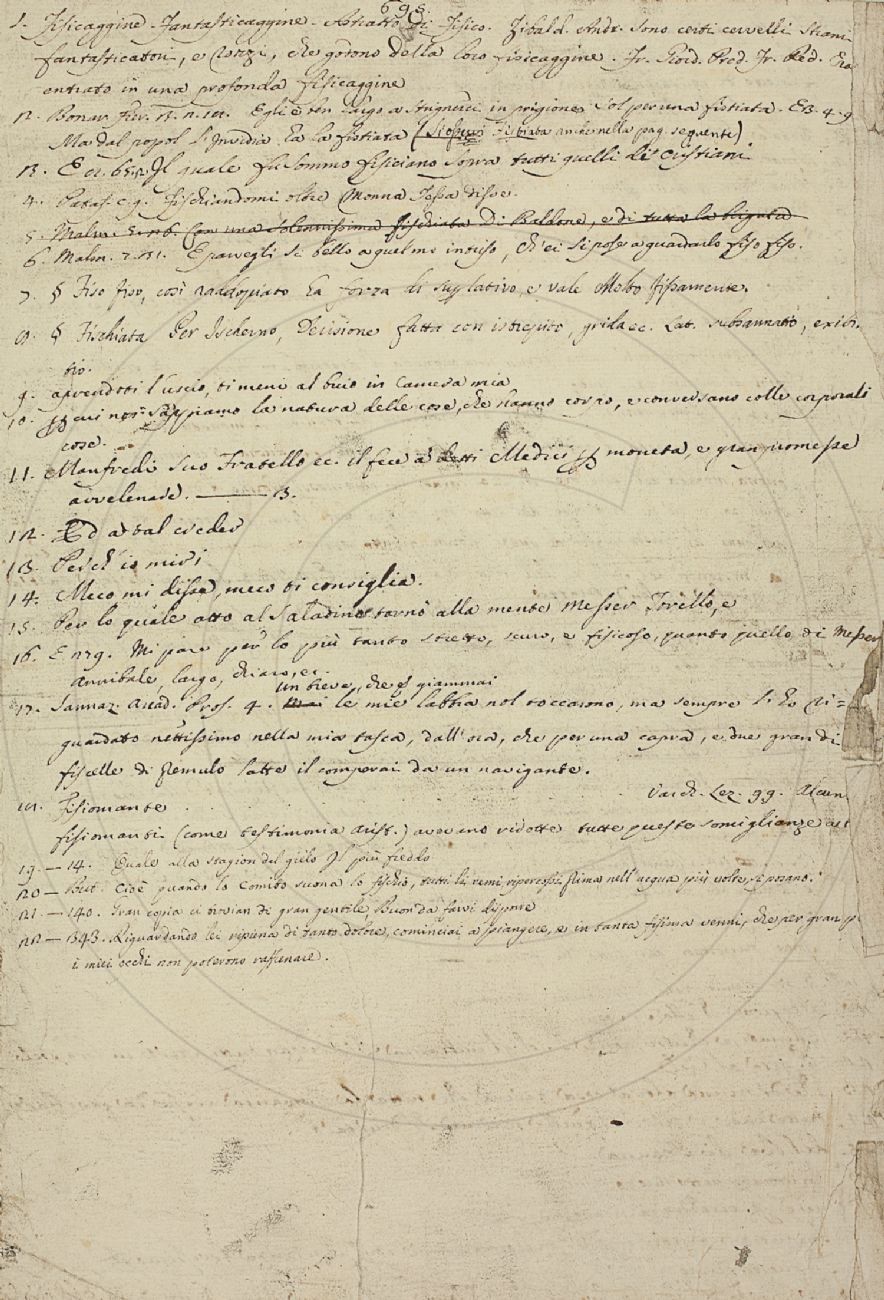 698.
1. Fisicaggine. Fantasticaggine. Astratto di Fisico. Zibald. Andr. Sono certi cervelli strani
fantasticatori, e rozzi, che godono della loro fisicaggine. Fr. Giord. Pred. Fr. Red. Era
entrato in una profonda fisicaggine
2. Bonar. Fier. Egli è ben largo a strignerci in prigione Sol per una fistiata. E 3. 4. 9
Ma dal popol l'invidia ha la fistiata ( anche nella pag. seguente)
3. Il quale fu sommo fisiciano sopra tutti quelli de' Cristiani
4. Pataf. c. 9. Fischiandomi oltre Monna Tessa disse.
5. Malm. Con una solennissima fischiata di Baldone, e di tutta la brigata
6. Malm. E parvegli sì bello a quel me intriso, Ch'ei si pose a guardarlo fiso fiso.
7. § Fiso fiso, così raddopiato ha forza di suplativo, e vale Molto fissamente.
8. § Fischiata Per Ischerno, Derisione fatta con istrepito, grida ec. Lat. subsannatio, exibi-
tio.
9. aprendoti l'uscio, ti meni al buio in camera mia
10. cui noi sappiamo la natura delle cose, che hanno corpo, e conversano colle corporali
cose.
11. Manfredi suo Fratello ec. il fece a' detti Medici moneta, e gran promesse
avvelenare. —— B.
12. Ed a tal creder
13. Perch'io miri
14. Meco mi disse, meco ti consiglia.
15. Per lo quale atto al Saladino tornò alla mente Messer Torello, e
16. Mi pare per lo più tanto stretto, scuro, e fisicoso, quanto quello di Messer
Annibale largo, chiaro, ec.
un breve, che è giammai
17. Sannaz. Arcad. Pros. 4. le mie labbia nol toccarono, ma sempre l'ho ri=
guardato nettissimo nella mia tasca, dall'ora, che per una capra, e due grandi
fiscelle di premulo latte il comperai da un navigante.
Varch. Lez. 99. Alcun
18. Fisiomante
fisiomanti (come testimonia Arist.) avevano ridotte tutte queste somiglianze
19. — 14. Quale alla stagion del gielo Il più freddo
20 — But. Cioè quando lo comito suona lo fischio, tutti li remi, ripercossi prima nell'acqua più volte, si posano.
21. — 140. Gran copia ci trovian di gran gentile Buon da farvi disposte
22 — 343. Riguardando lei ripiena di tanto dolore, cominciai a piangere, e in tanta fisima venni, che per gran p
i miei occhi non poterono raffrenare.